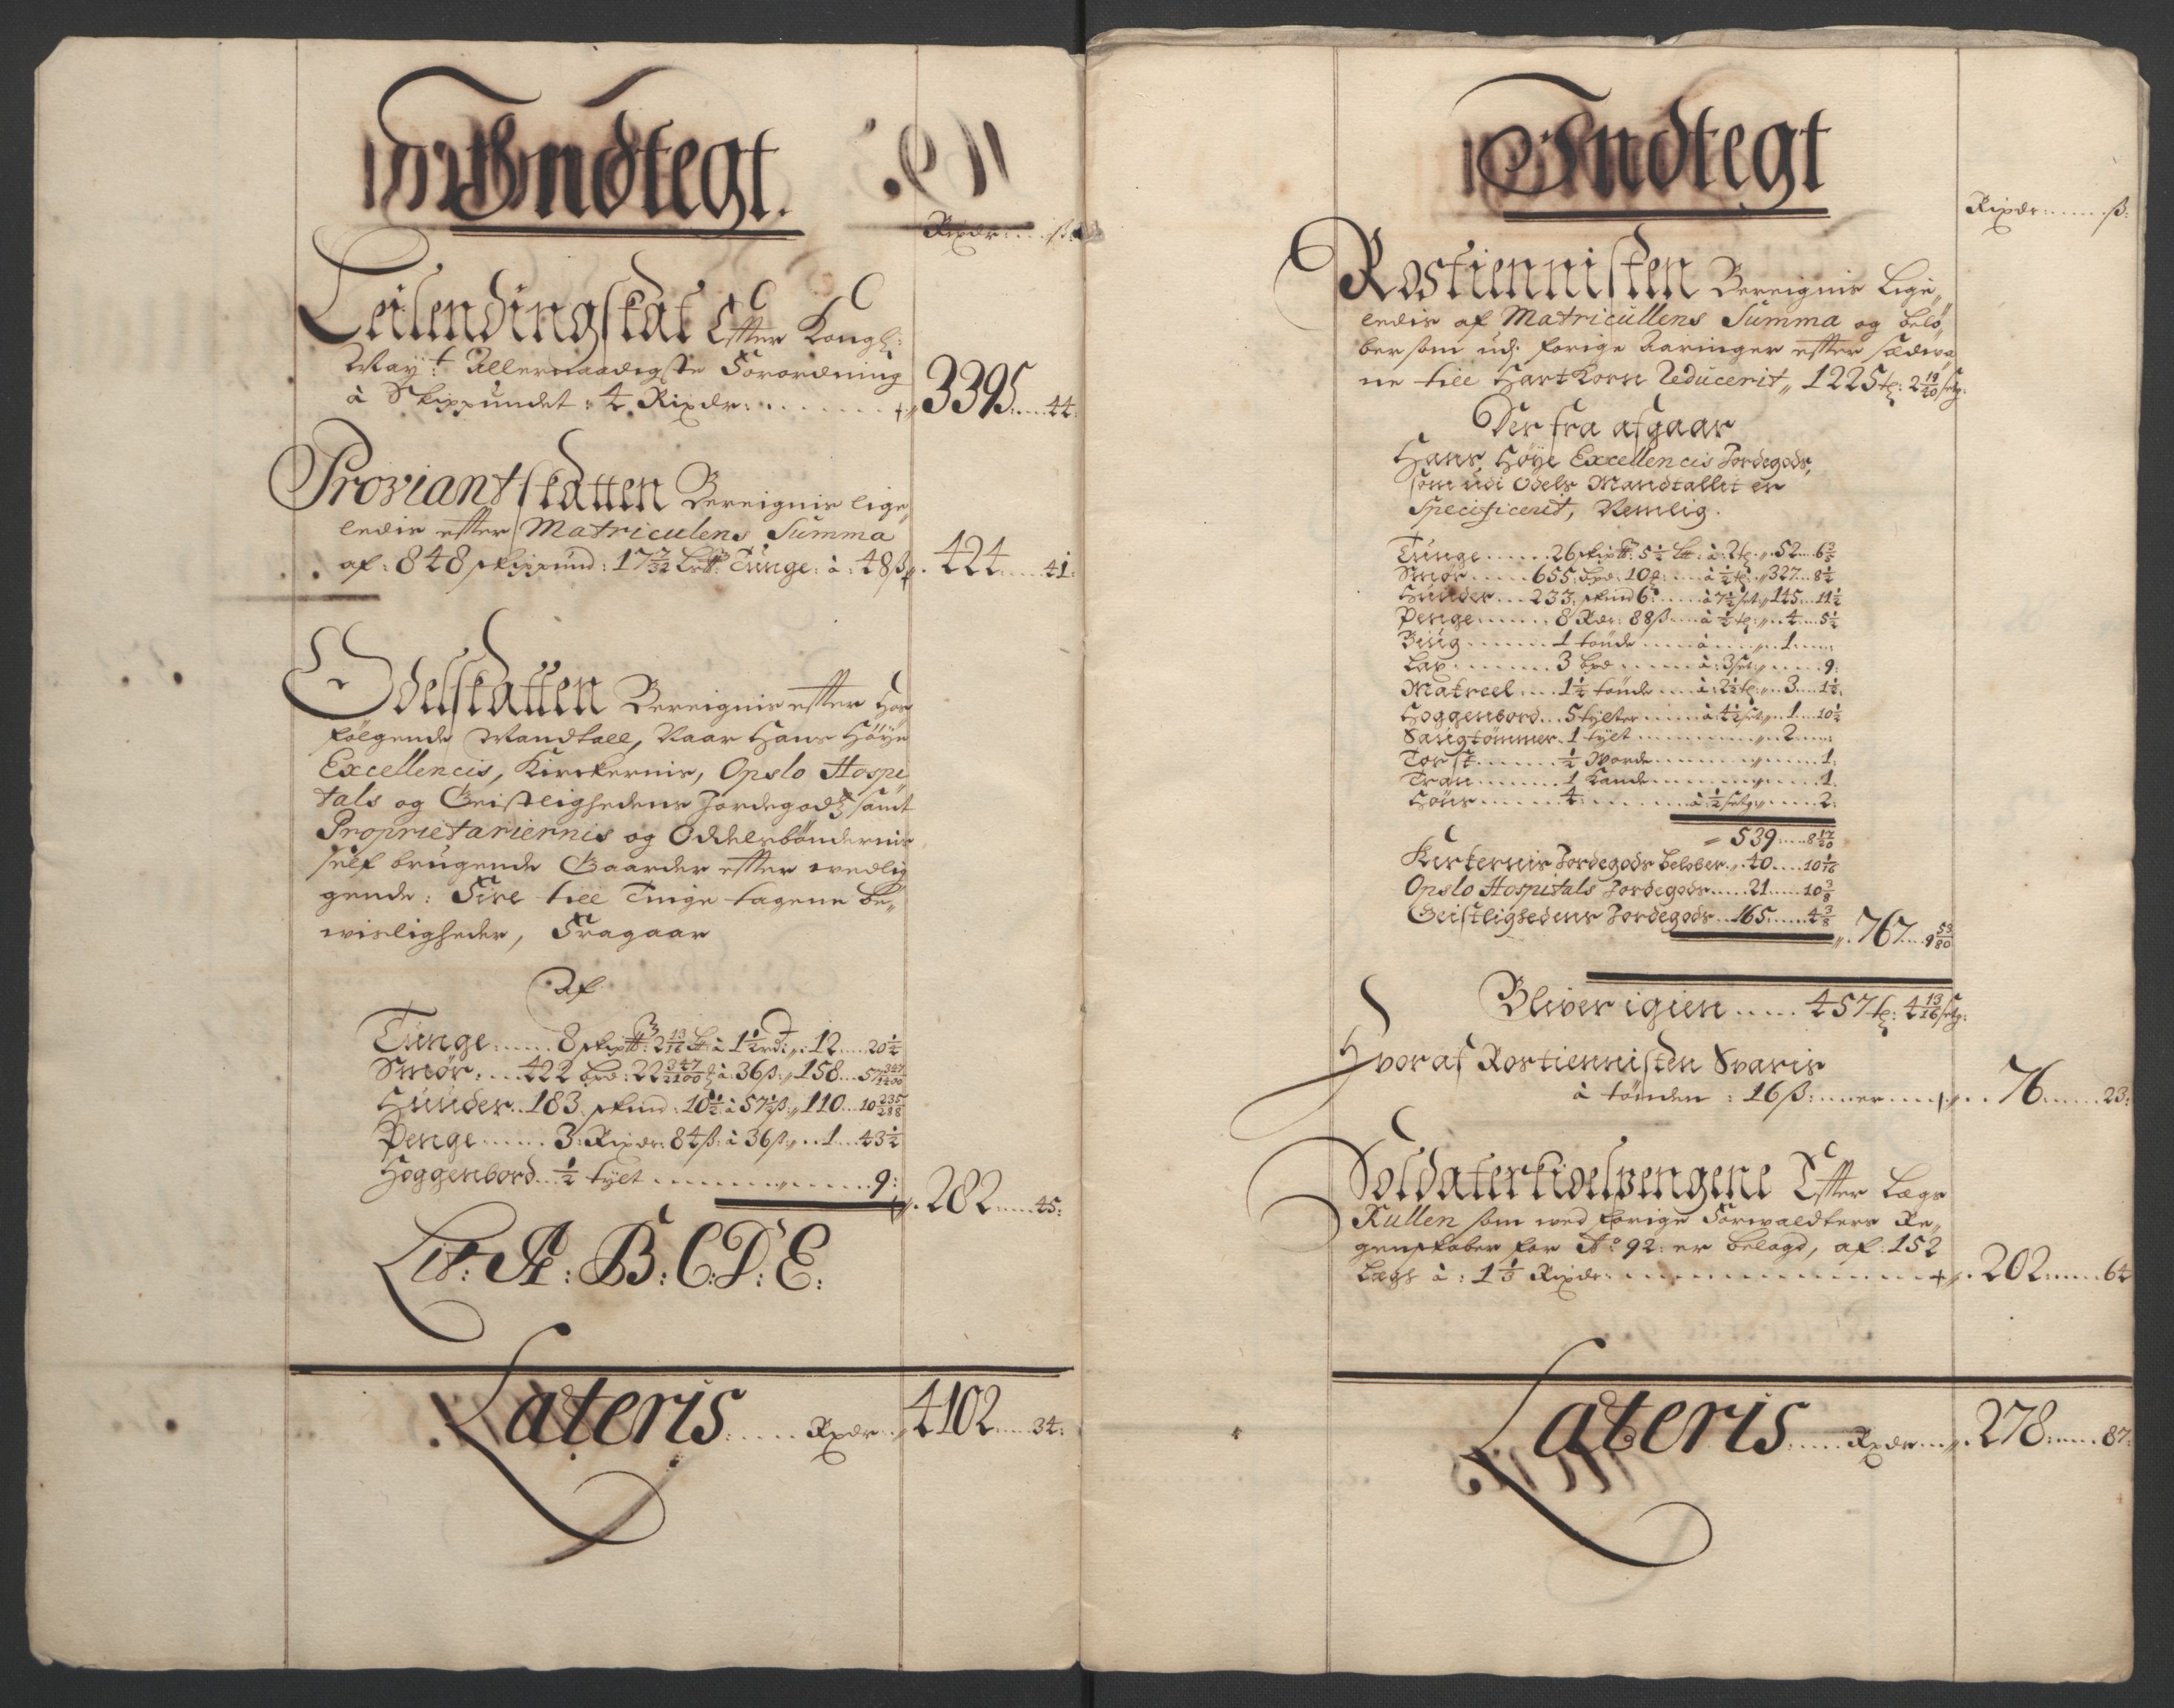 Indtegt.
Rixdr: ß:
Leilendingskat Efter Kongl:
May:t Allernaadigste Forordning
à Skippundet: 4 Rixdr: 3395 44:
Proviantskatten Bereignis lige„
ledis efter Matriculens Summa
af: 848 skippund: 17 7/32 L℔: Tunge: à: 48 ß 424 41:
Odelskatten Bereignis efter hos
følgende Mandtall, Naar Hans Høye
Excellencis, Kirckernis, Opslo Hospi
tals og Geistlighedens Jordegodtz samt
Proprietariernis og Oddelsbøndernis
self brugende Gaarder efter wedlig
gende: Fire till Tinge tagene be„
wisligheder, Fragaar
af
Tunge 8 skip℔: 2 13/16 L℔ à 1 1/2 rd: 12 20 1/2
Smør: 422 bpd: 22 à: 36 ß: 158
Huuder 183 skind: 10 1/2 à 57 1/2 ß: 110 10 235/288
Penge 3: Rixdr: 84 ß: à 36 ß 1 43 1/2
Hoggenbord 1/2 tylt 9:
282 45:
Lit: A: B: C: D: E:
Lateris Rixdr 4102 34:
Indtegt
Rixdr: ß:
Rostiennisten Bereignis Lige„
ledis af Matricullens Summa og belø„
ber som udj forige Aaringer efter sædwa
ne till HartKorn Reducerit„ 1225 t: 2 19/20 setg:
Der fra afgaar
Hans Høye Excellencis Jordegods,
som udi Odels Mandtallit er
Specificerit, Nemlig.
Tunge 26 skip℔: 5 1/2 L℔: à: 2 t: 52 6 3/5
Smør 655: bpd: 10 à 1/2 t: 327 8 1/2
Huuder 233 skind 6: à 7 1/2 set: 145 11 1/2
Penge 8 Rdr: 88 ß à 1/2 t: 4 5 1/2
Biug 1 tønde à 1
Lax 3 bpd à: 3 set: 9:
Matreel 1 1/4 tønde à: 2 1/2 t: 3 1 1/2
Hoggenbord 5 tylter à: 4 1/2 set: 1 10 1/2
Saugtømmer 1 tylt 2
Torsk 1/2 Worde 1:
Tran 1 Kande 1:
Høns 4: à: 1/2 setg: 2:
539 8 17/20
Kirkernis Jordegods beløber 40 10 1/16
Opslo Hospitals Jordegods 21 10 3/8
Geistlighedens Jordegods 165 4 3/8 767 9 53/80
Bliver igien 457 t: 4 13/16 setg:
Hvoraf Rostiennisten Svaris
à tønden: 16 ß: er 76 23:
Soldaterkioelpengene Efter Lægs
Rullen som wed forige Forwaldters Re„
genskaber for Ao: 92: er belagd, af: 152
Lægs à: 1 1/3 Rixdr: 202 64
Lateris Rixdr 278 87: